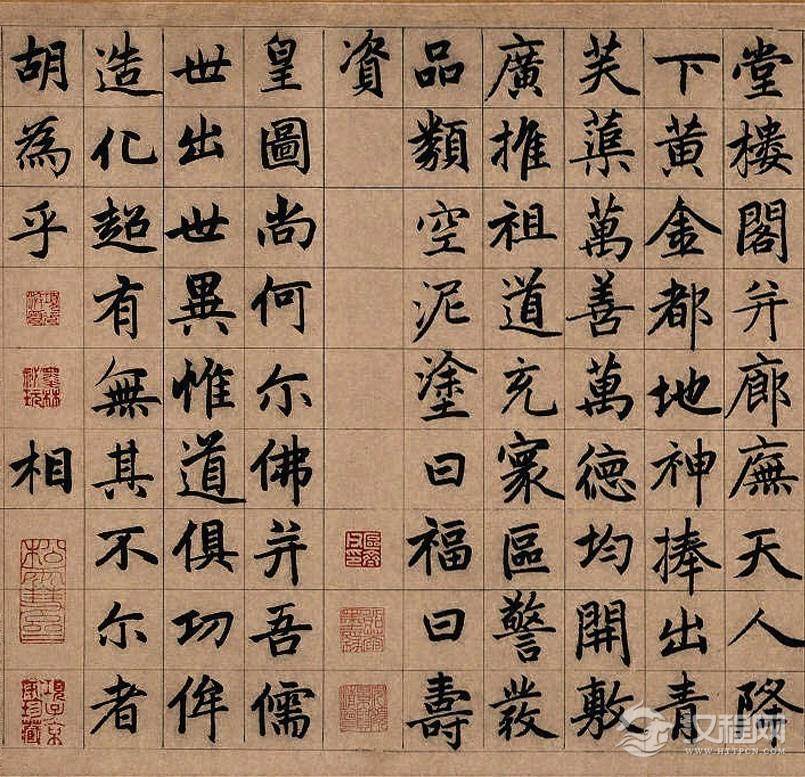 堂樓閣并廊廡天人降
下黄金都地神捧出青
芙蕖萬善萬德均開敷
廣推祖道充寰區警發
品類空泥塗曰福曰壽
資
皇圖尚何尔佛并吾儒
世出世異惟道俱功侔
造化超有無其不尔者
胡為乎 相
項子京家珍藏
汉程网
WWW.HTTPCN.COM